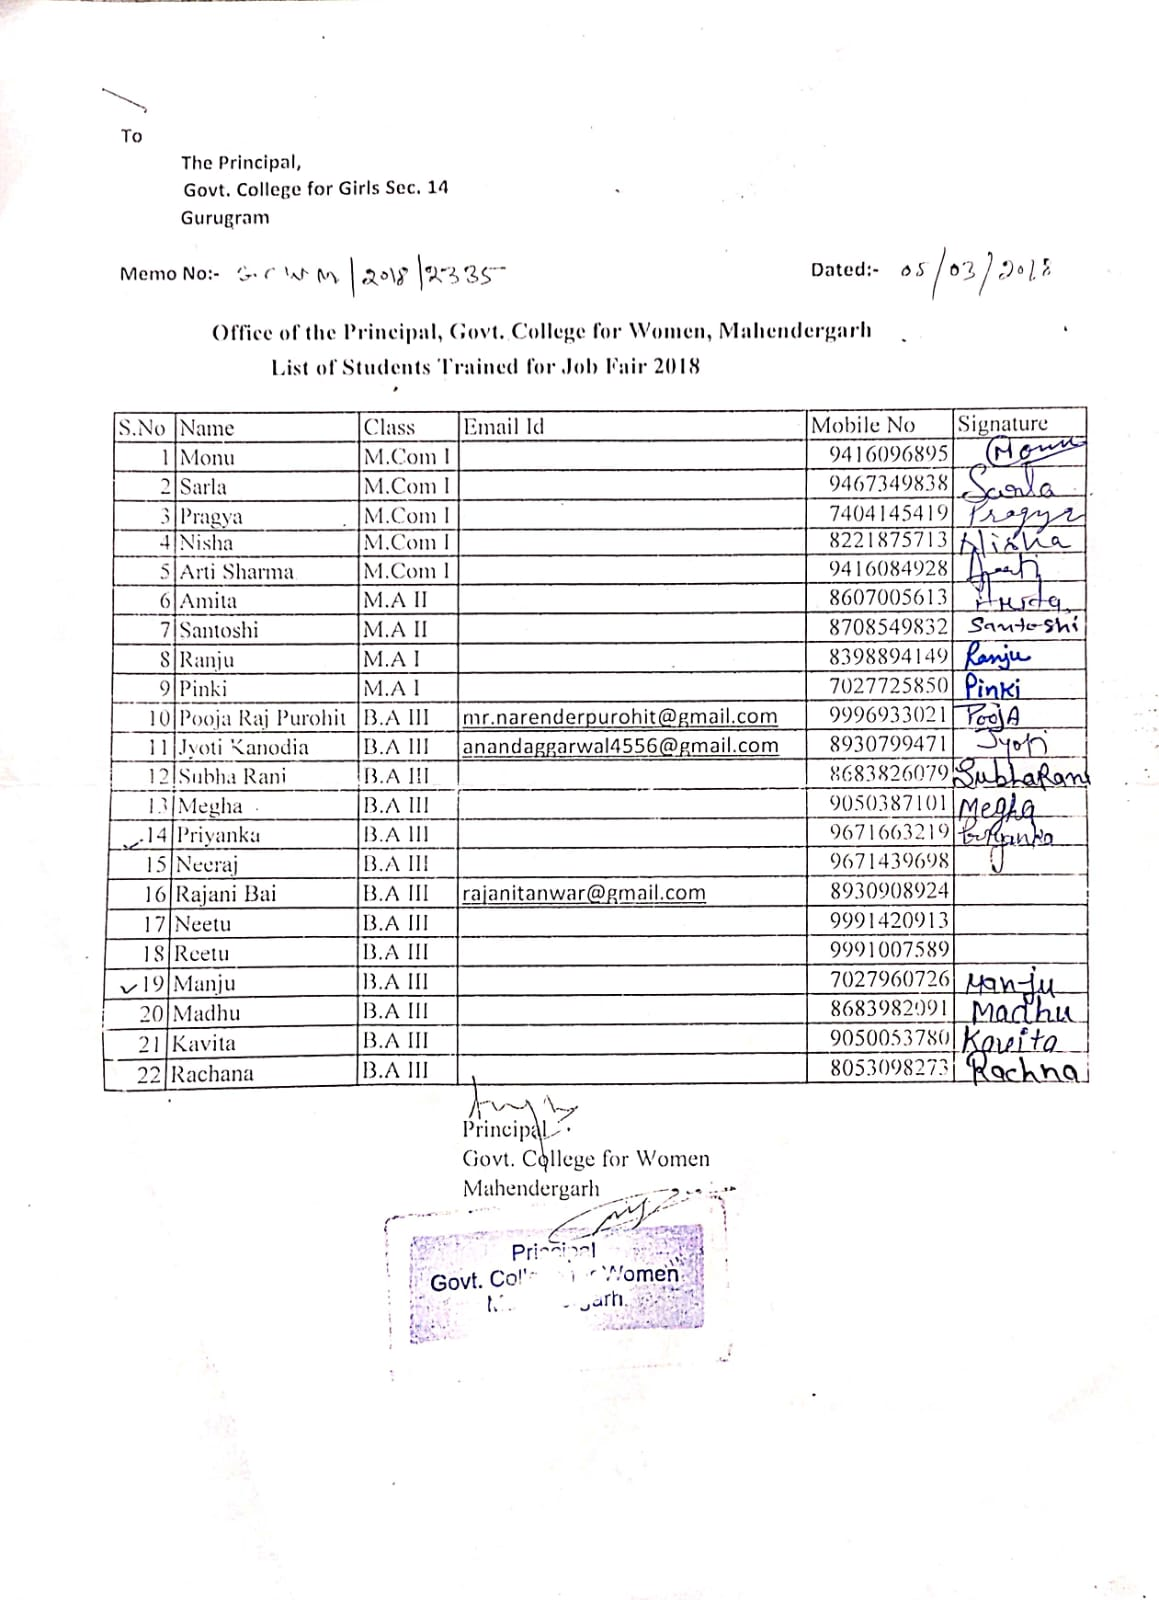 To
The Principal,
Govt. College for Girls Sec. 14
Gurugram
Memo No:- GCWM/2018/2335 Dated:- 05/03/2018
Office of the Principal, Govt. College for Women, Mahendergarh
List of Students Trained for Job Fair 2018
S.No Name Class Email Id Mobile No Signature
1 Monu M.Com I 9416096895 Monu
2 Sarla M.Com I 9467349838 Sarla
3 Pragya M.Com I 7404145419 Pragya
4 Nisha M.Com I 8221875713 Nisha
5 Arti Sharma M.Com I 9416084928
6 Amita M.A II 8607005613
7 Santoshi M.A II 8708549832 Santoshi
8 Ranju M.A I 8398894149 Ranju
9 Pinki M.A I 7027725850 Pinki
10 Pooja Raj Purohit B.A III mr.narenderpurohit@gmail.com 9996933021 PoojA
11 Jyoti Kanodia B.A III anandaggarwal4556@gmail.com 8930799471 Jyoti
12 Subha Rani B.A III 8683826079 SubhaRani
13 Megha B.A III 9050387101 Megha
14 Priyanka B.A III 9671663219 Priyanka
15 Neeraj B.A III 9671439698
16 Rajani Bai B.A III rajanitanwar@gmail.com 8930908924
17 Neetu B.A III 9991420913
18 Reetu B.A III 9991007589
19 Manju B.A III 7027960726 Manju
20 Madhu B.A III 8683982091 Madhu
21 Kavita B.A III 9050053780 Kavita
22 Rachana B.A III 8053098273 Rachna
Principal
Govt. College for Women
Mahendergarh
Principal
Govt. Women